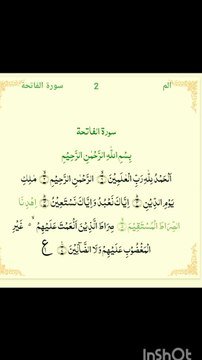 الٓم 2 سورة الفاتحة
سورة الفاتحة
بِسْمِ اللهِ الرَّحْمٰنِ الرَّحِيْمِ
اَلْحَمْدُ لِلّٰهِ رَبِّ الْعٰلَمِيْنَ ۝ الرَّحْمٰنِ الرَّحِيْمِ ۝ مٰلِكِ
يَوْمِ الدِّيْنِ ۝ اِيَّاكَ نَعْبُدُ وَاِيَّاكَ نَسْتَعِيْنُ ۝ اِهْدِنَا
الصِّرَاطَ الْمُسْتَقِيْمَ ۝ صِرَاطَ الَّذِيْنَ اَنْعَمْتَ عَلَيْهِمْ غَيْرِ
الْمَغْضُوْبِ عَلَيْهِمْ وَلَا الضَّآلِّيْنَ ۝ ع
InShOt